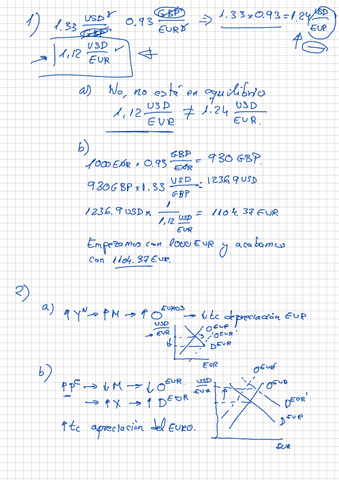 1) 1.33 USD/GBP 0.93 GBP/EUR ⇒ 1.33 x 0.93 = 1.24 USD/EUR
1,12 USD/EUR
a) No, no está en equilibrio
1,12 USD/EUR ≠ 1.24 USD/EUR.
b)
1000 EUR x 0.93 GBP/EUR = 930 GBP.
930 GBP x 1.33 USD/GBP = 1236,9 USD
1236.9 USD x 1/1,12 USD/EUR = 1104.37 EUR
Empezamos con 1000 EUR y acabamos
con 1104.37 EUR.
2)
a) ↑ Yᴺ → ↑ M → ↑ O EUROS → ↓ tc depreciación EUR
USD/EUR
O EUR
O EUR'
D EUR
EUR
b)
↑ P → ↓ M → ↓ O EUR.
→ ↑ X → ↑ D EUR
↑ tc apreciación del EURO.
USD/EUR
O EUR'
O EUR
D EUR'
D EUR
EUR